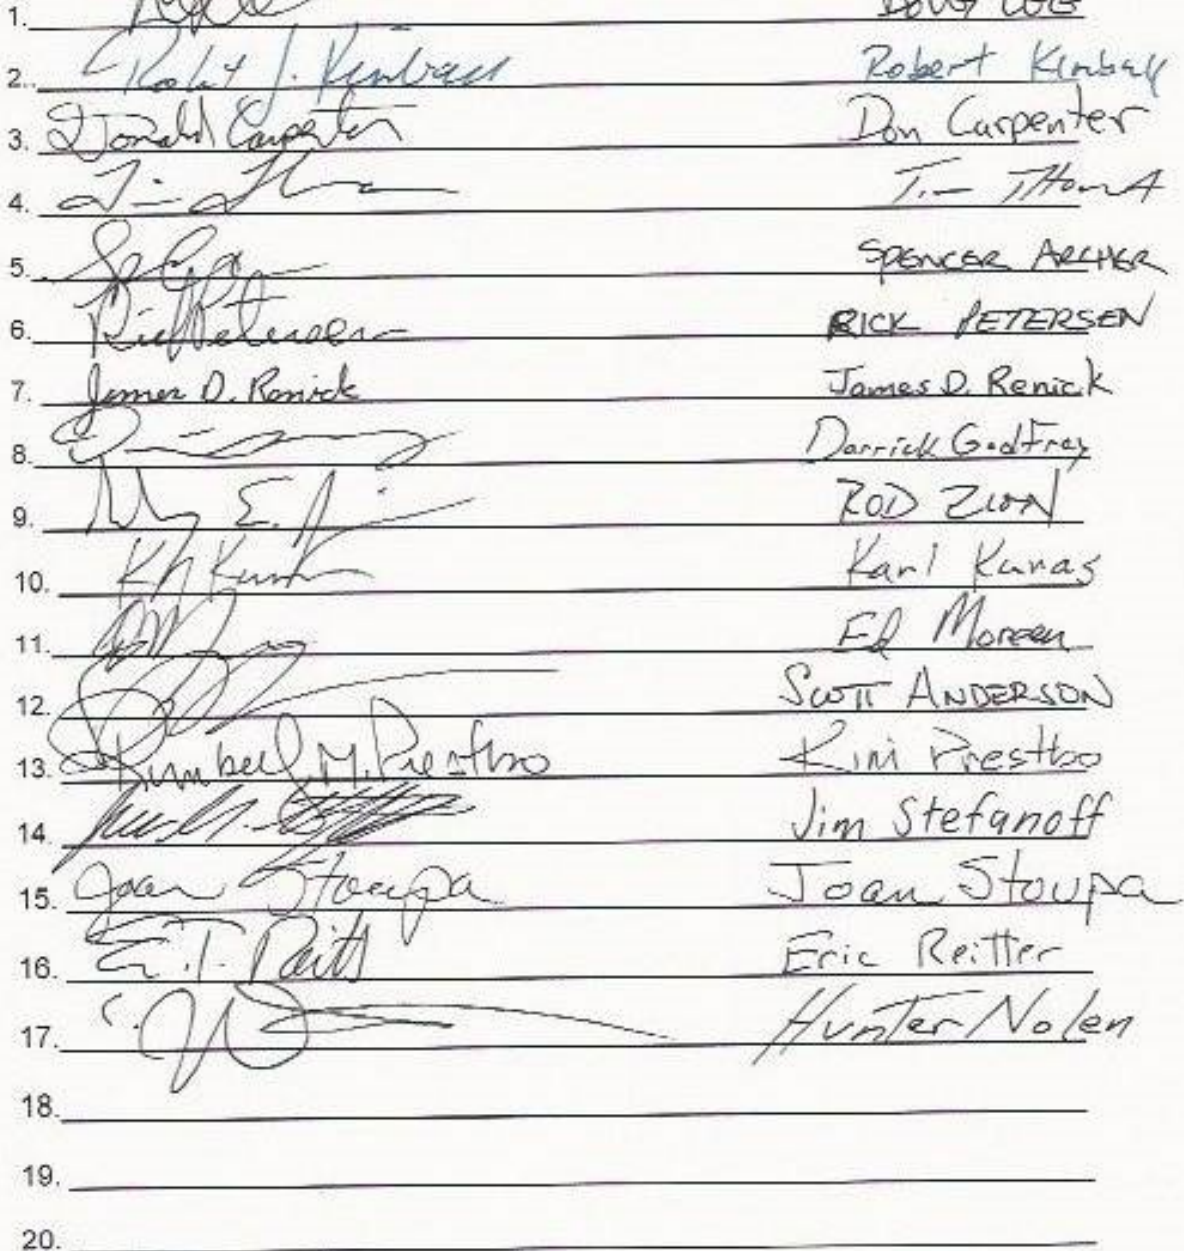 1. DOUG
2. Robert J. Kimball Robert Kimball
3. Donald Carpenter Don Carpenter
4. Tim
5. SPENCER ARCHER
6. Rick Petersen RICK PETERSEN
7. James D. Renick James D. Renick
8. Darrick Godfrey
9. ROD ZION
10. Karl Kunas
11. Ed Moreen
12. SCOTT ANDERSON
13. Kimberly M. Prestbo Kim Prestbo
14. Jim Stefanoff
15. Joan Stoupa Joan Stoupa
16. Eric Reitter
17. Hunter Nolen
18.
19.
20.